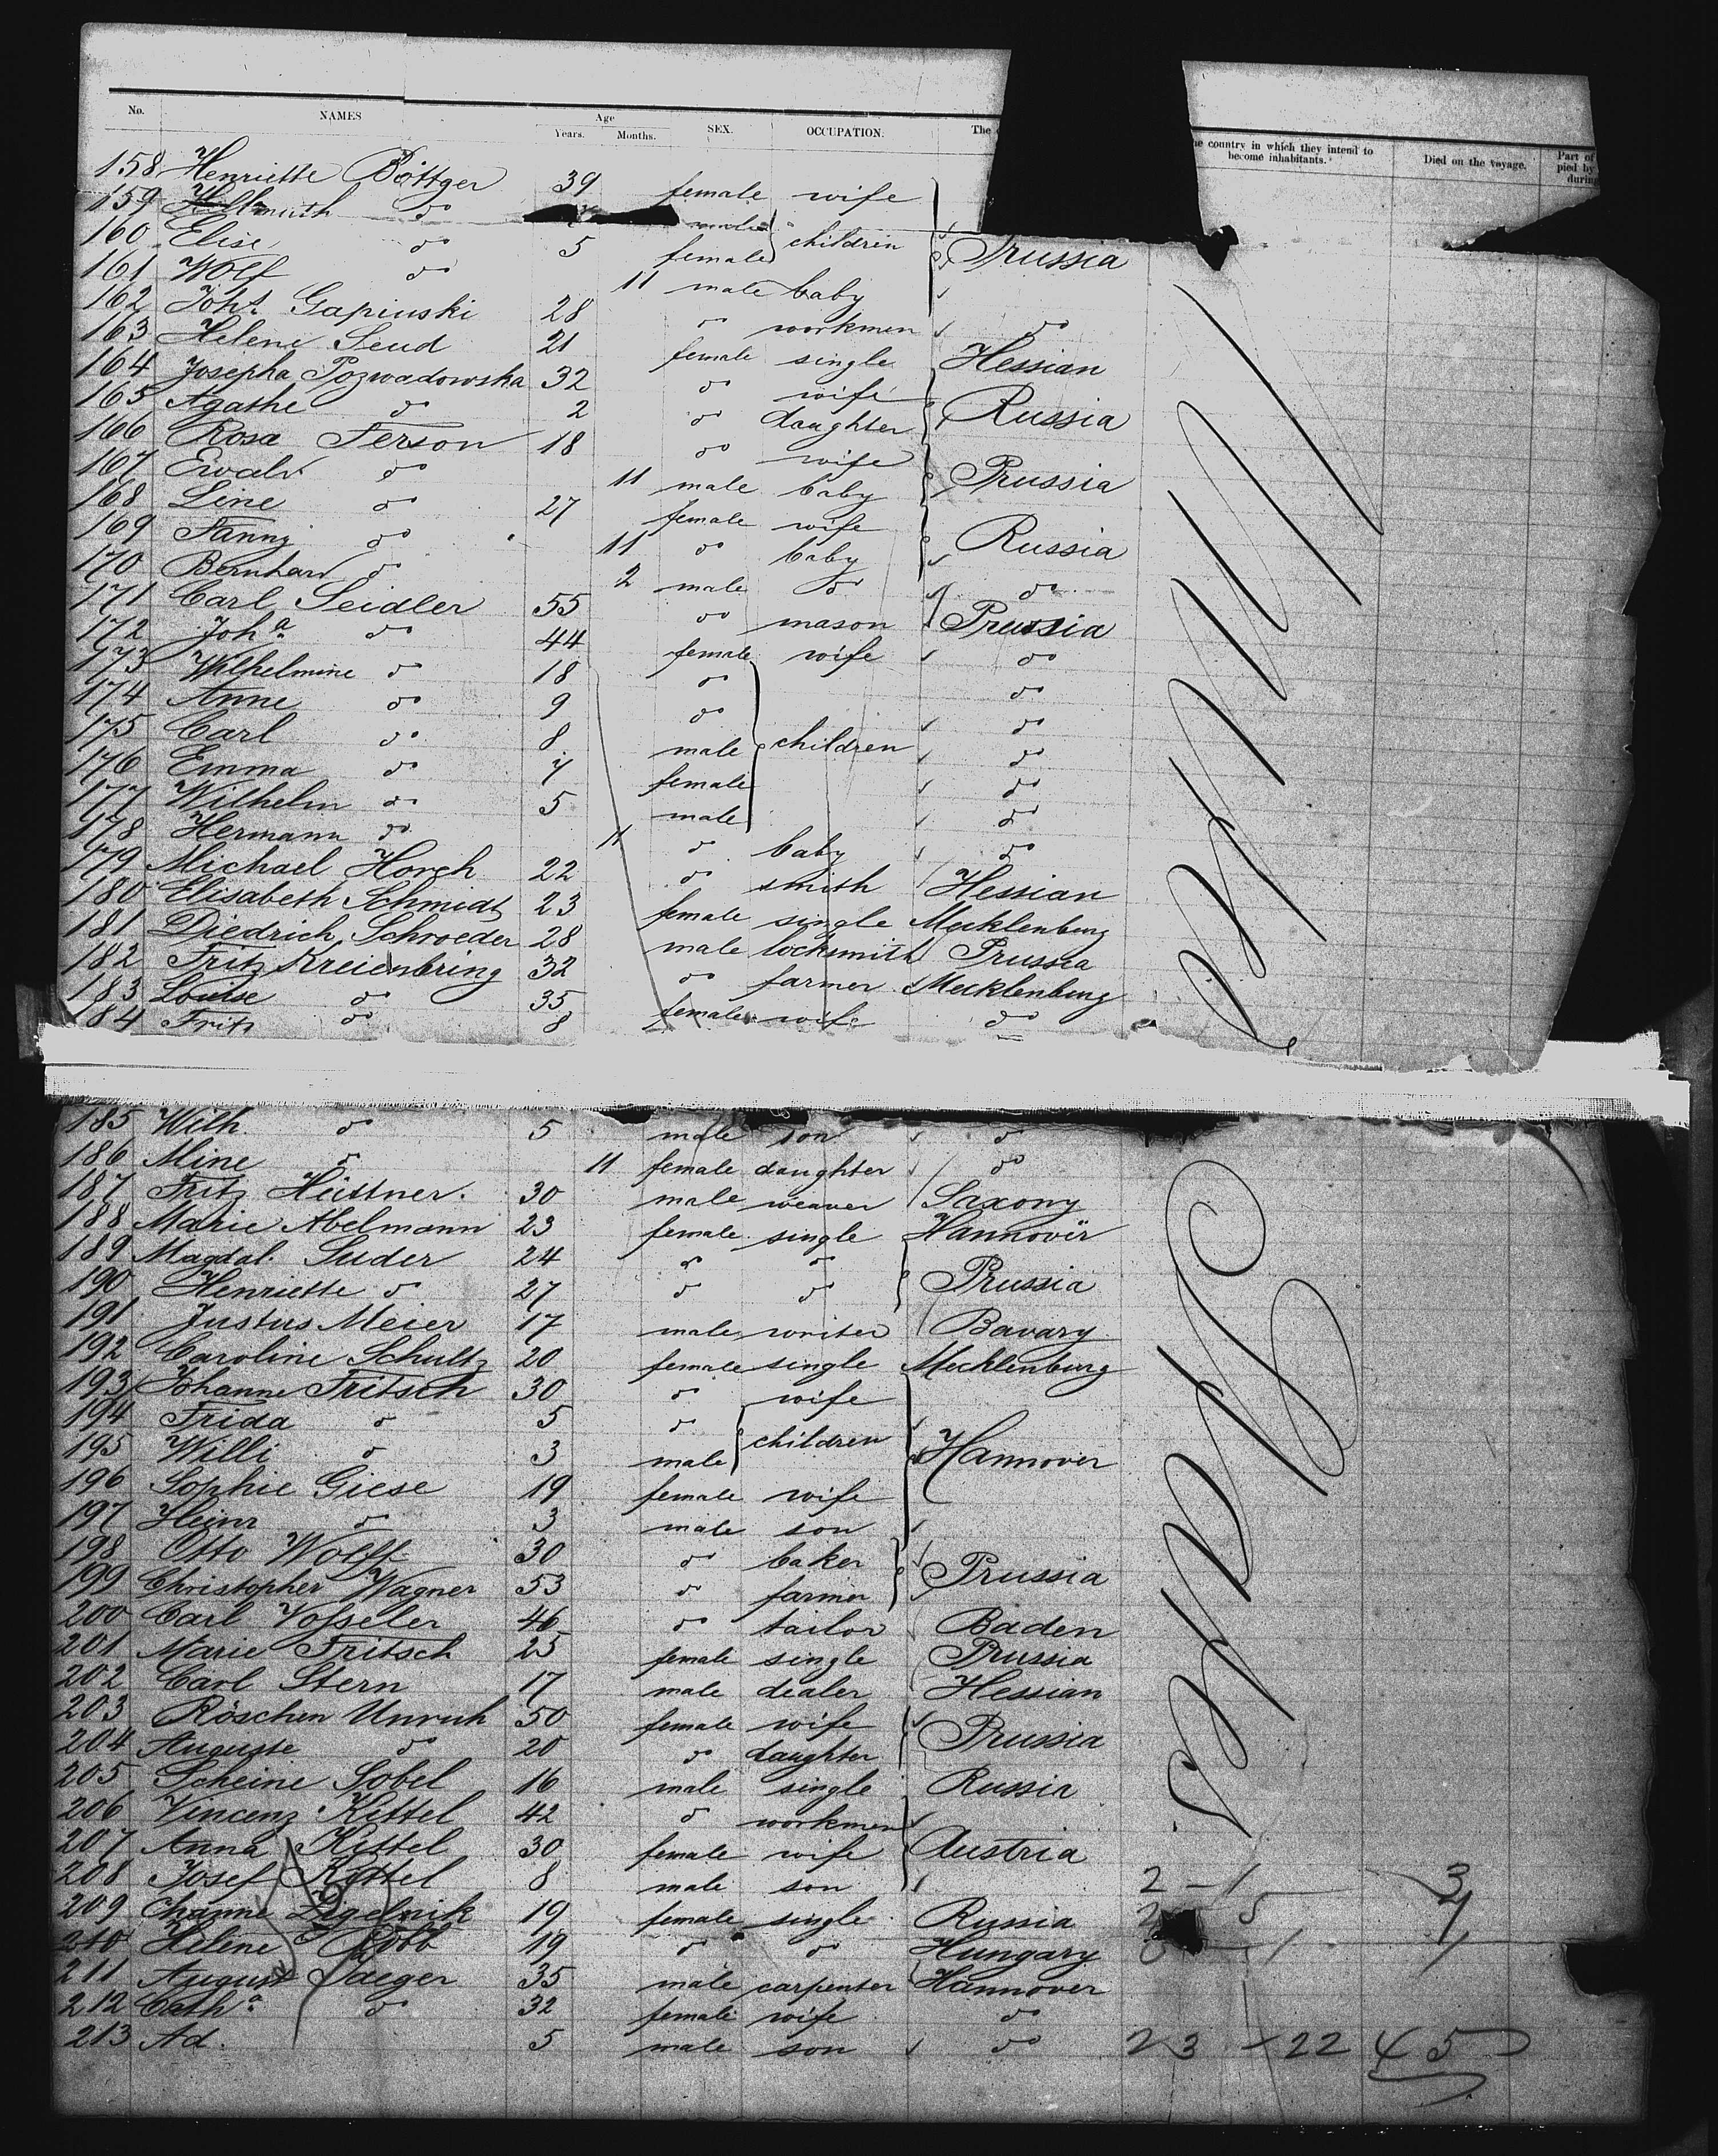 No. NAMES Age Years. Months. SEX. OCCUPATION. The country in which they intend to become inhabitants. Died on the voyage. Part of pied by during
158 Henriette Böttger 39 female wife
159 Hellmuth do male children
160 Elise do 5 female Prussia
161 Wolf do 11 male baby
162 Joh.s Gapinski 28 do workmen do
163 Helene Seud 21 female single Hessian
164 Josepha Pozwadowska 32 do wife
165 Agathe do 2 do daughter Russia
166 Rosa Ferson 18 do wife
167 Ewald do 11 male baby Prussia
168 Line do 27 female wife
169 Fanny do 11 do baby Russia
170 Bernhard do 2 male do do
171 Carl Seidler 55 do mason Prussia
172 Joh.a do 44 female wife do
173 Wilhelmine do 18 do do
174 Anne do 9 do do
175 Carl do 8 male children do
176 Emma do 7 female do
177 Wilhelm do 5 male do
178 Hermann do 11 do baby do
179 Michael Horch 22 do smith Hessian
180 Elisabeth Schmidt 23 female single Mecklenburg
181 Diedrich Schroeder 28 male locksmith Prussia
182 Fritz Kreienbring 32 do farmer Mecklenburg
183 Louise do 35 female wife do
184 Fritz do 8
185 Wilh. do 5 male son do
186 Mine do 11 female daughter do
187 Fritz Hüttner. 30 male weaver Saxony
188 Marie Abelmann 23 female single Hannover
189 Magdal. Suder 24 do do
190 Henriette do 27 do do Prussia
191 Justus Meier 17 male writer Bavary
192 Caroline Schultz 20 female single Mecklenburg
193 Johanne Fritsch 30 do wife
194 Frida do 5 do children
195 Willi do 3 male Hannover
196 Sophie Giese 19 female wife
197 Heinr do 3 male son
198 Otto Wolff 30 do baker
199 Christopher Wagner 53 do farmer Prussia
200 Carl Vosseler 46 do tailor Baden
201 Marie Fritsch 25 female single Prussia
202 Carl Stern 17 male dealer Hessian
203 Röschen Unruh 50 female wife
204 Auguste do 20 do daughter Prussia
205 Scheine Sobel 16 male single Russia
206 Vincenz Kittel 42 do workmen
207 Anna Kittel 30 female wife Austria
208 Josef Kittel 8 male son 2 - 1 3
209 Channe Zigelnik 19 female single Russia 2 5 7
210 Helene Robb 19 do do Hungary 0 - 1 1
211 August Jaeger 35 male carpenter Hannover
212 Cath.a do 32 female wife do
213 Ad. 5 male son do 23 - 22 45